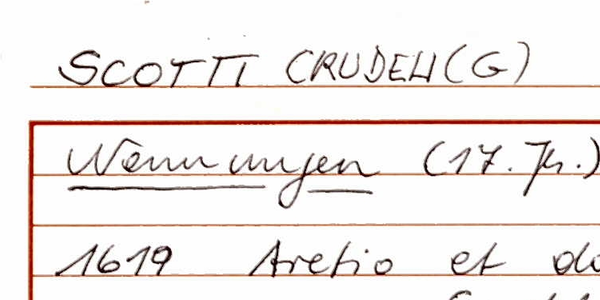 SCOTTI CRUDELI (G)
Nennungen (17. Jh.)
1619 Aretio et do